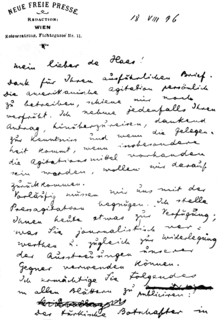 NEUE FREIE PRESSE.
REDACTION:
WIEN
Kolowratring, Fichtegasse No. 11.
18 VIII 96
Mein lieber de Haas!
Dank für Ihren ausführlichen Brief.
Die amerikanische Agitation persönlich
zu betreiben, schiene mir noch
verfrüht. Ich nehme jedenfalls Ihren
Antrag, hinüberzureisen, dankend
zur Kenntniss und wenn die Gelegen-
heit kommt, wenn insbesondere
die Agitationsmittel vorhanden
sein werden, wollen wir darauf
zurückkommen.
Vorläufig müssen wir uns mit der
Pressagitation begnügen. Ich stelle
Ihnen heute etwas zur Verfügung,
was Sie journalistisch ver-
werthen u. zugleich zur Widerlegung
der Ausstreuungen unserer
Gegner verwenden können.
Ich ermächtige Sie Folgendes
in allen Blättern zu publiciren:
Der türkische Botschafter in